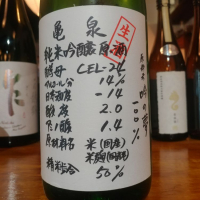 亀泉
生
純米吟醸原酒
酵母 CEL-24
アルコール分 14%
日本酒度 -14
酸度 2.0
アミノ酸 1.4
原材料名 米(国産)
米麹(国産米)
精米歩合 50%
100%